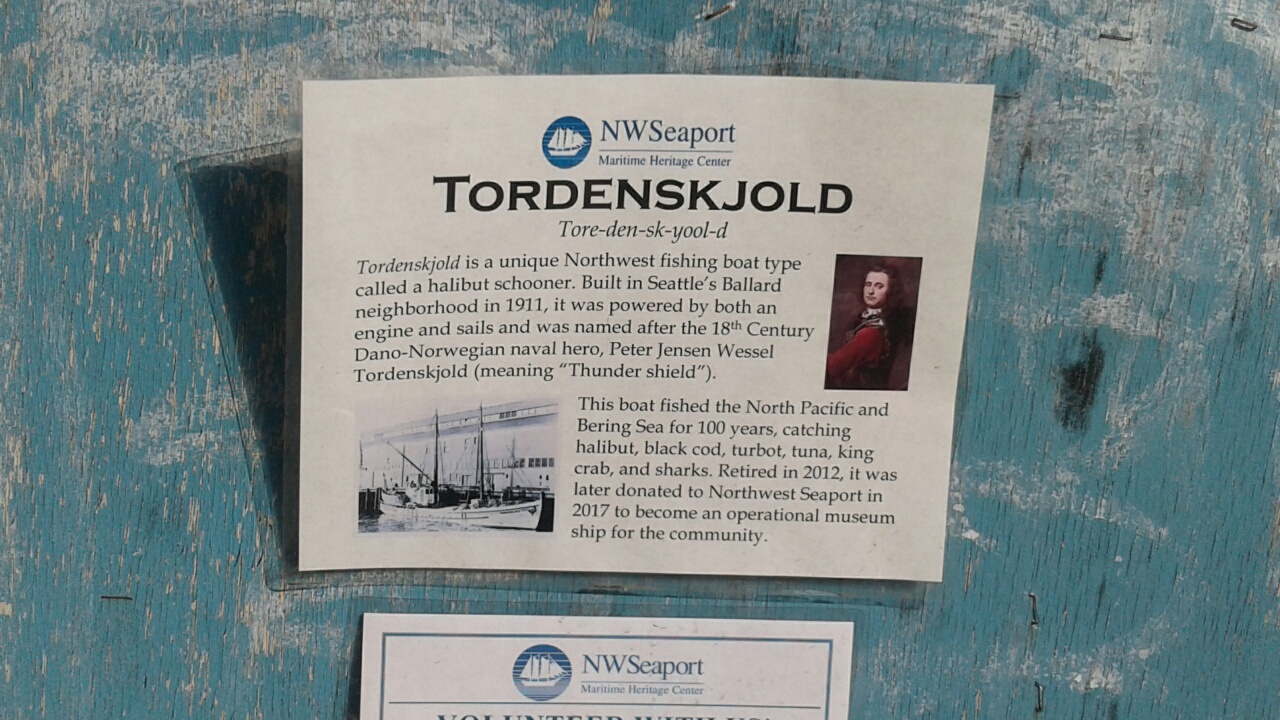 NWSeaport
Maritime Heritage Center
TORDENSKJOLD
Tore-den-sk-yool-d
Tordenskjold is a unique Northwest fishing boat type
called a halibut schooner. Built in Seattle's Ballard
neighborhood in 1911, it was powered by both an
engine and sails and was named after the 18th Century
Dano-Norwegian naval hero, Peter Jensen Wessel
Tordenskjold (meaning "Thunder shield").
This boat fished the North Pacific and
Bering Sea for 100 years, catching
halibut, black cod, turbot, tuna, king
crab, and sharks. Retired in 2012, it was
later donated to Northwest Seaport in
2017 to become an operational museum
ship for the community.
NWSeaport
Maritime Heritage Center
VOLUNTEER WITH US!